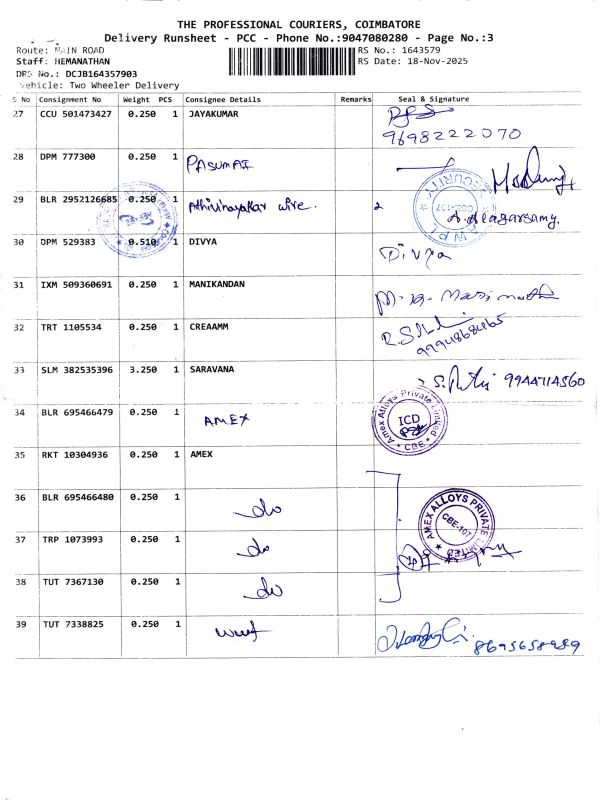 THE PROFESSIONAL COURIERS, COIMBATORE
Delivery Runsheet - PCC - Phone No.:9047080280 - Page No.:3
Route: MAIN ROAD
RS No.: 1643579
Staff: HEMANATHAN
RS Date: 18-Nov-2025
DRS No.: DCJB164357903
Vehicle: Two Wheeler Delivery
S No Consignment No Weight PCS Consignee Details Remarks Seal & Signature
27 CCU 501473427 0.250 1 JAYAKUMAR
9698222070
28 DPM 777300 0.250 1 PASUMAI
SECURITY
29 BLR 2952126685 0.250 1 Athivinayakar wire. 2 A. Alagarsamy.
CBE-107
30 DPM 529383 0.510 1 DIVYA Divya
31 IXM 509360691 0.250 1 MANIKANDAN
32 TRT 1105534 0.250 1 CREAMM
9994868465
33 SLM 382535396 3.250 1 SARAVANA 9944714560
34 BLR 695466479 0.250 1 AMEX
Amex Alloys Private Limited
ICD
CBE
35 RKT 10304936 0.250 1 AMEX
36 BLR 695466480 0.250 1 do
AMEX ALLOYS PRIVATE LIMITED
CBE-107
37 TRP 1073993 0.250 1 do
38 TUT 7367130 0.250 1 do
39 TUT 7338825 0.250 1
8695658989